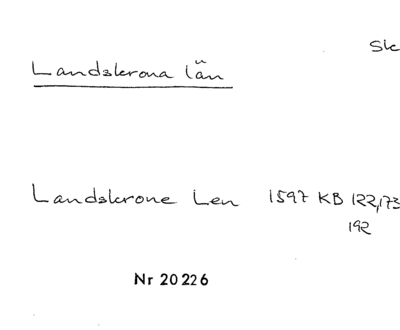 Sk
Landskrona län
Landskrone Len 1597 KB 122,173
192
Nr 20226